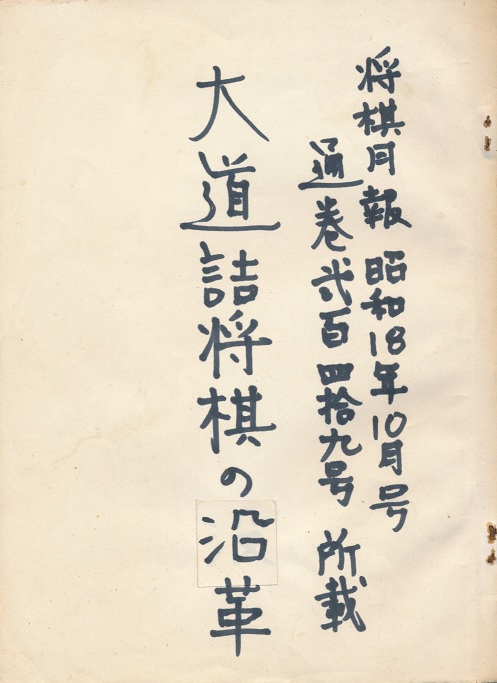 将棋月報 昭和18年10月号
通巻弐百四拾九号 所載
大道詰将棋の沿革